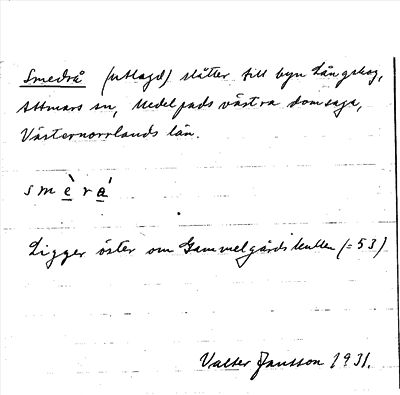 Smedrå (utlagd) slåtter till byn Långskog,
Attmars sn, Medelpads västra domsaga,
Västernorrlands län.
smèrá
Ligger öster om Gammelgårdskullen (=53)
Valter Jansson 1931.